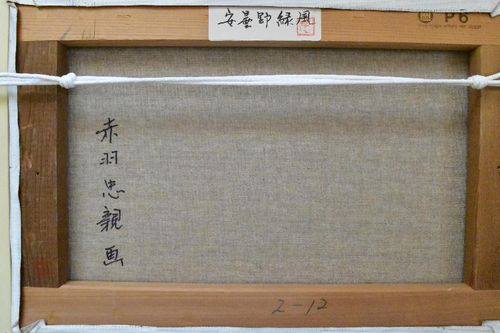 安曇野緑風
P6
赤羽忠親画
2-12